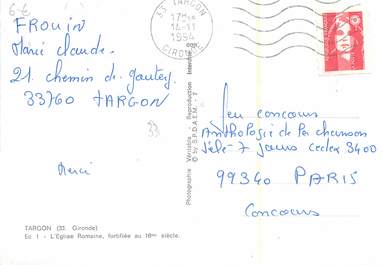 6-€
FROUIN
Marie claude.
21. chemin de gautey
33760 TARGON
33
Merci
33 TARGON
17H
14-11
1994
GIRONDE
Jeu concours
Anthologie de la chanson
Télé-7 jours cedex 3400
99340 PARIS
Concours
TARGON (33. Gironde)
Ec 1 - L'Eglise Romaine, fortifiée au 16me siècle.
Photographie Véritable - Reproduction Interdite
© by S.P.D.A.E.M. - 7